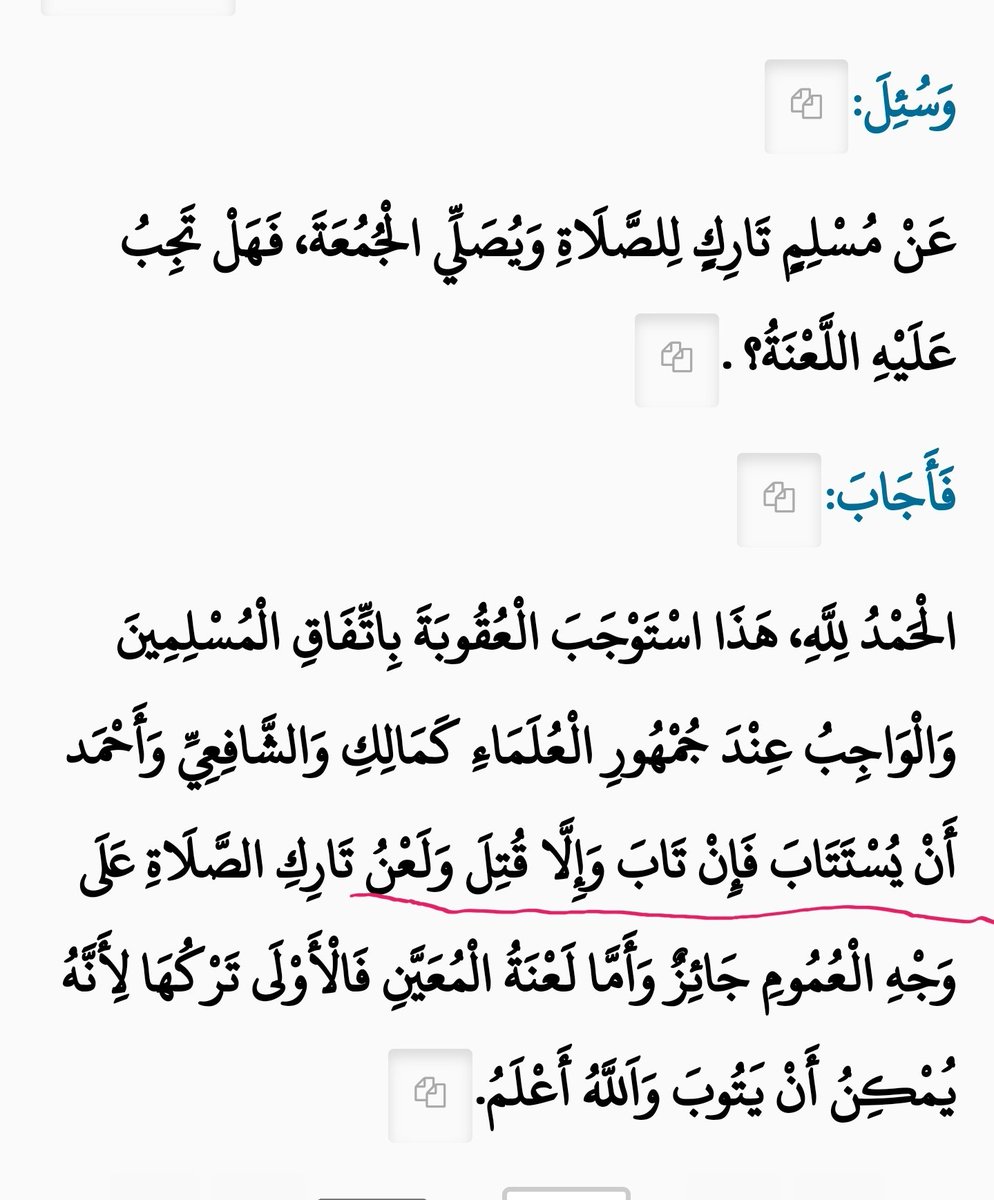 وَسُئِلَ:
عَنْ مُسْلِمٍ تَارِكٍ لِلصَّلَاةِ وَيُصَلِّي الْجُمُعَةَ، فَهَلْ تَجِبُ
عَلَيْهِ اللَّعْنَةُ؟ .
فَأَجَابَ:
الْحَمْدُ لِلَّهِ، هَذَا اسْتَوْجَبَ الْعُقُوبَةَ بِاتِّفَاقِ الْمُسْلِمِينَ
وَالْوَاجِبُ عِنْدَ جُمْهُورِ الْعُلَمَاءِ كَمَالِكِ وَالشَّافِعِيِّ وَأَحْمَد
أَنْ يُسْتَتَابَ فَإِنْ تَابَ وَإِلَّا قُتِلَ وَلَعْنُ تَارِكِ الصَّلَاةِ عَلَى
وَجْهِ الْعُمُومِ جَائِزٌ وَأَمَّا لَعْنَةُ الْمُعَيَّنِ فَالْأَوْلَى تَرْكُهَا لِأَنَّهُ
يُمْكِنُ أَنْ يَتُوبَ وَاَللَّهُ أَعْلَمُ.